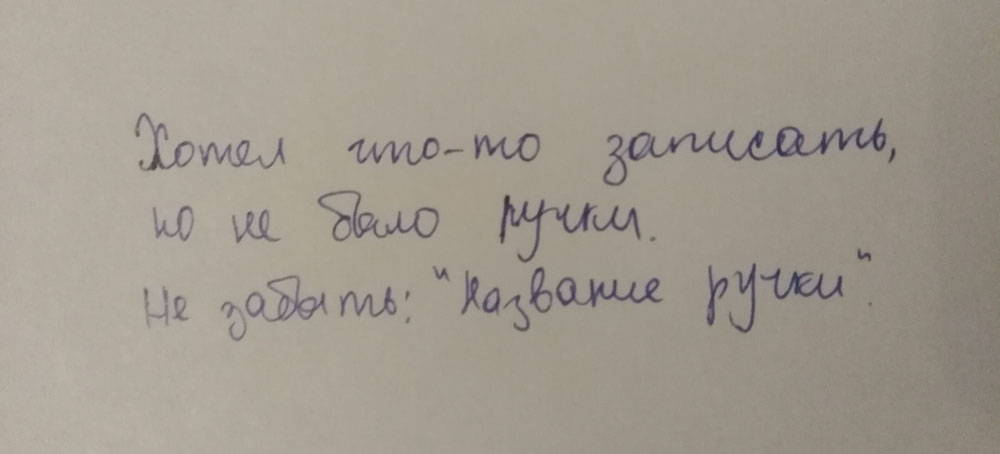 Хотел что-то записать,
но не было ручки.
Не забыть: "Название ручки".